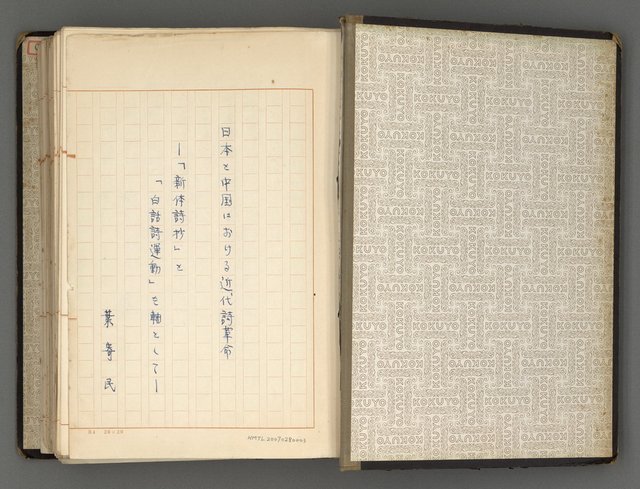 日本と中国における近代詩革命
―「新体詩抄」と
「白話詩運動」を軸として―
葉寄民
B4 20×20
NMTL20070280003
KOKUYO